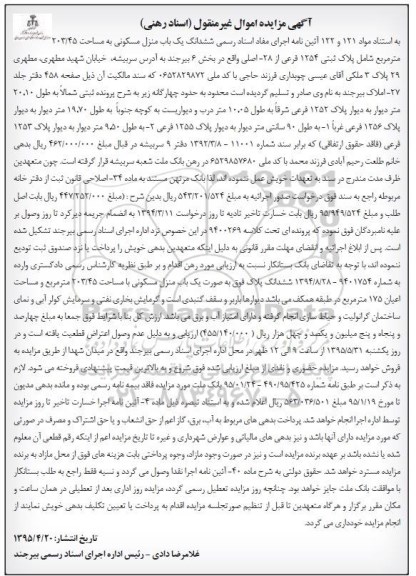 آگهی مزایده اموال غیرمنقول (اسناد رهنی)
به استناد مواد ۱۲۱ و ۱۲۲ آئین نامه اجرای مفاد اسناد رسمی ششدانگ یک باب منزل مسکونی به مساحت ۲۰۳/۴۵
مترمربع شامل پلاک ثبتی ۱۲۵۴ فرعی از ۲۸- اصلی واقع در بخش ۶ بیرجند به آدرس سربیشه، خیابان شهید مطهری، مطهری
۲۹ پلاک ۳ ملکی آقای عیسی چوبداری فرزند حاجی با کد ملی ۰۶۵۲۸۲۹۸۷۲ که سند مالکیت آن ذیل صفحه ۴۵۸ دفتر جلد
۲۷- املاک بیرجند به نام وی صادر و تسلیم گردیده است محدود به حدود چهارگانه زیر به شرح پرونده ثبتی شمالاً به طول ۲۰،۱۰
متر دیوار به دیوار پلاک ۱۲۵۲ فرعی شرقاً به طول ۱۰،۰۵ متر درب و دیواریست به کوچه جنوباً به طول ۱۹،۷۰ متر دیوار به دیوار
پلاک ۱۲۵۶ فرعی غرباً ۱- به طول ۹۰ سانتی متر دیوار به دیوار پلاک ۱۲۵۵ فرعی ۲- به طول ۹،۵۰ متر دیوار به دیوار پلاک ۱۲۵۳
فرعی (فاقد حقوق ارتفاقی) که برابر سند شماره ۱۱۰۰۱ - ۱۳۹۲/۳/۸ دفتر ۹ سربیشه در قبال مبلغ ۴۶۲/۰۰۰/۰۰۰ ریال بدهی
خانم طلعت رحیم آبادی فرزند محمد با کد ملی ۶۵۲۹۸۵۷۶۸۰ در رهن بانک ملت شعبه سربیشه قرار گرفته است. چون متعهدین
ظرف مدت مندرج در سند به تعهدات خویش عمل ننموده اند، لذا بانک مرتهن مستند به ماده ۳۴- اصلاحی قانون ثبت از دفتر خانه
مربوطه راجع به سند فوق درخواست صدور اجرائیه به مبلغ ۵۴۳/۲۰۱/۵۲۴ ریال بدین شرح : (مبلغ ۴۴۷/۲۵۲/۰۰۰ ریال بابت اصل
طلب و مبلغ ۹۵/۹۴۹/۵۲۴ ریال بابت خسارت تاخیر تادیه تا روز درخواست ۱۳۹۴/۳/۱۱ به انضمام جریمه دیرکرد تا روز وصول بر
علیه نامبردگان فوق نموده که پرونده ای تحت کلاسه ۹۴۰۰۲۶۹ در این خصوص نزد اداره اجرای اسناد رسمی بیرجند تشکیل شده
است. پس از ابلاغ اجرائیه و انقضای مهلت مقرر قانونی به دلیل اینکه متعهدین بدهی خویش را پرداخت یا نزد صندوق ثبت تودیع
ننموده اند، با توجه به تقاضای بانک بستانکار نسبت به ارزیابی مورد رهن اقدام و بر طبق نظریه کارشناس رسمی دادگستری وارده
به شماره ۹۴۰۱۷۵۴ - ۱۳۹۴/۸/۲۸ ششدانگ پلاک فوق به صورت یک باب منزل مسکونی با مساحت ۲۰۳/۴۵ مترمربع و مساحت
اعیان ۱۷۵ مترمربع در طبقه همکف می باشد دیوارها باربر و سقف گنبدی است و گرمایش بخاری نفتی و سرمایش کولر آبی و نمای
ساختمان گرانولیت و حیاط سازی انجام گرفته و دارای امتیاز آب و برق می باشد. ارزش کل بنا با شرایط فوق جمعا به مبلغ چهارصد
و پنجاه و پنج میلیون و یکصد و چهل هزار ریال ( ۴۵۵/۱۴۰/۰۰۰) ارزیابی و به دلیل عدم وصول اعتراض قطعیت یافته است و در
روز یکشنبه ۱۳۹۵/۵/۳۱ از ساعت ۹ الی ۱۲ ظهر در محل اداره اجرای اسناد رسمی بیرجند واقع در میدان شهدا از طریق مزایده به
فروش خواهد رسید. مزایده حضوری و نقدی از مبلغ ارزیابی شده فوق شروع و به بالاترین قیمت پیشنهادی فروخته می شود. لازم
به ذکر است بر طبق نامه شماره ۴۹۰/۹۵/۴۲۵ - ۹۵/۰۱/۲۳ بانک ملت مورد مزایده فاقد بیمه نامه رسمی بوده و مانده بدهی مدیون
تا مورخ ۹۵/۱/۱۹ مبلغ ۵۶۳/۰۳۶/۵۰۱ ریال اعلام شده و به استناد تبصره ذیل ماده ۴- آئین نامه اجرا خسارت تاخیر تا روز مزایده
توسط اداره اجرا انجام خواهد شد. پرداخت بدهی های مربوط به آب، برق، گاز اعم از حق انشعاب و یا حق اشتراک و مصرف در صورتی
که مورد مزایده دارای آنها باشد و نیز بدهی های مالیاتی و عوارض شهرداری و غیره تا تاریخ مزایده اعم از اینکه رقم قطعی آن معلوم
شده یا نشده باشد بر عهده برنده مزایده است و نیز در صورت وجود مازاد، وجوه پرداختی بابت هزینه های فوق از محل مازاد به برنده
مزایده مسترد خواهد شد. حقوق دولتی به شرح ماده ۴۰- آئین نامه اجرا نقدا وصول می گردد و نسیه فقط راجع به طلب بستانکار
با موافقت بانک ملت جایز خواهد بود. چنانچه روز مزایده تعطیل رسمی گردد، مزایده روز اداری بعد از تعطیلی در همان ساعت و
مکان مقرر برگزار و هرگاه متعهدین تا قبل از تنظیم صورتجلسه مزایده اقدام به پرداخت یا تعیین تکلیف بدهی خویش نمایند از
انجام مزایده خودداری می گردد.
تاریخ انتشار: ۱۳۹۵/۴/۲۰
غلامرضا دادی - رئیس اداره اجرای اسناد رسمی بیرجند